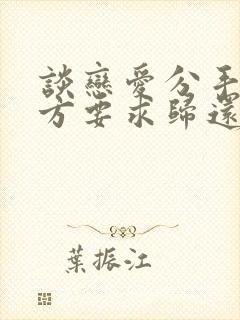 談戀愛分手
方要求歸還
葉振江